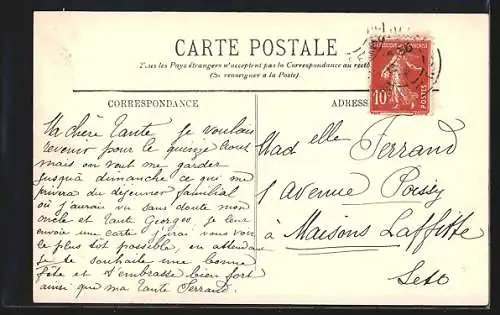 CARTE POSTALE
Tous les Pays étrangers n'acceptent pas la Correspondance au recto
(Se renseigner à la Poste).
CORRESPONDANCE
Ma chère Tante Je voulais
revenir pour le quinze Aout
mais on veut me garder
jusqu'à dimanche ce qui me
privera du déjeuner familial
où j'aurais vu sans doute mon
oncle et tante Georges. Je leur
envoie une carte j'irai vous voir
le plus tôt possible, en attendant
je te souhaite une bonne
fête et t'embrasse bien fort
ainsi que ma Tante Ferrand.
ADRESSE
Mad elle Ferrand
1 Avenue Poissy
à Maisons Laffitte
Seto
10
POSTES